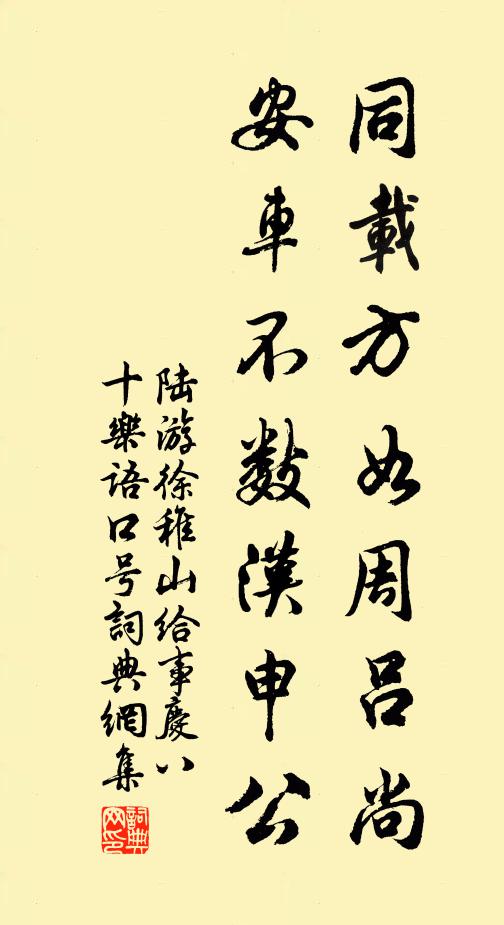 同載方如周呂尚
安車不數漢申公
陸游徐稚山給事慶八
十樂語口号詞典網集
詞典网印